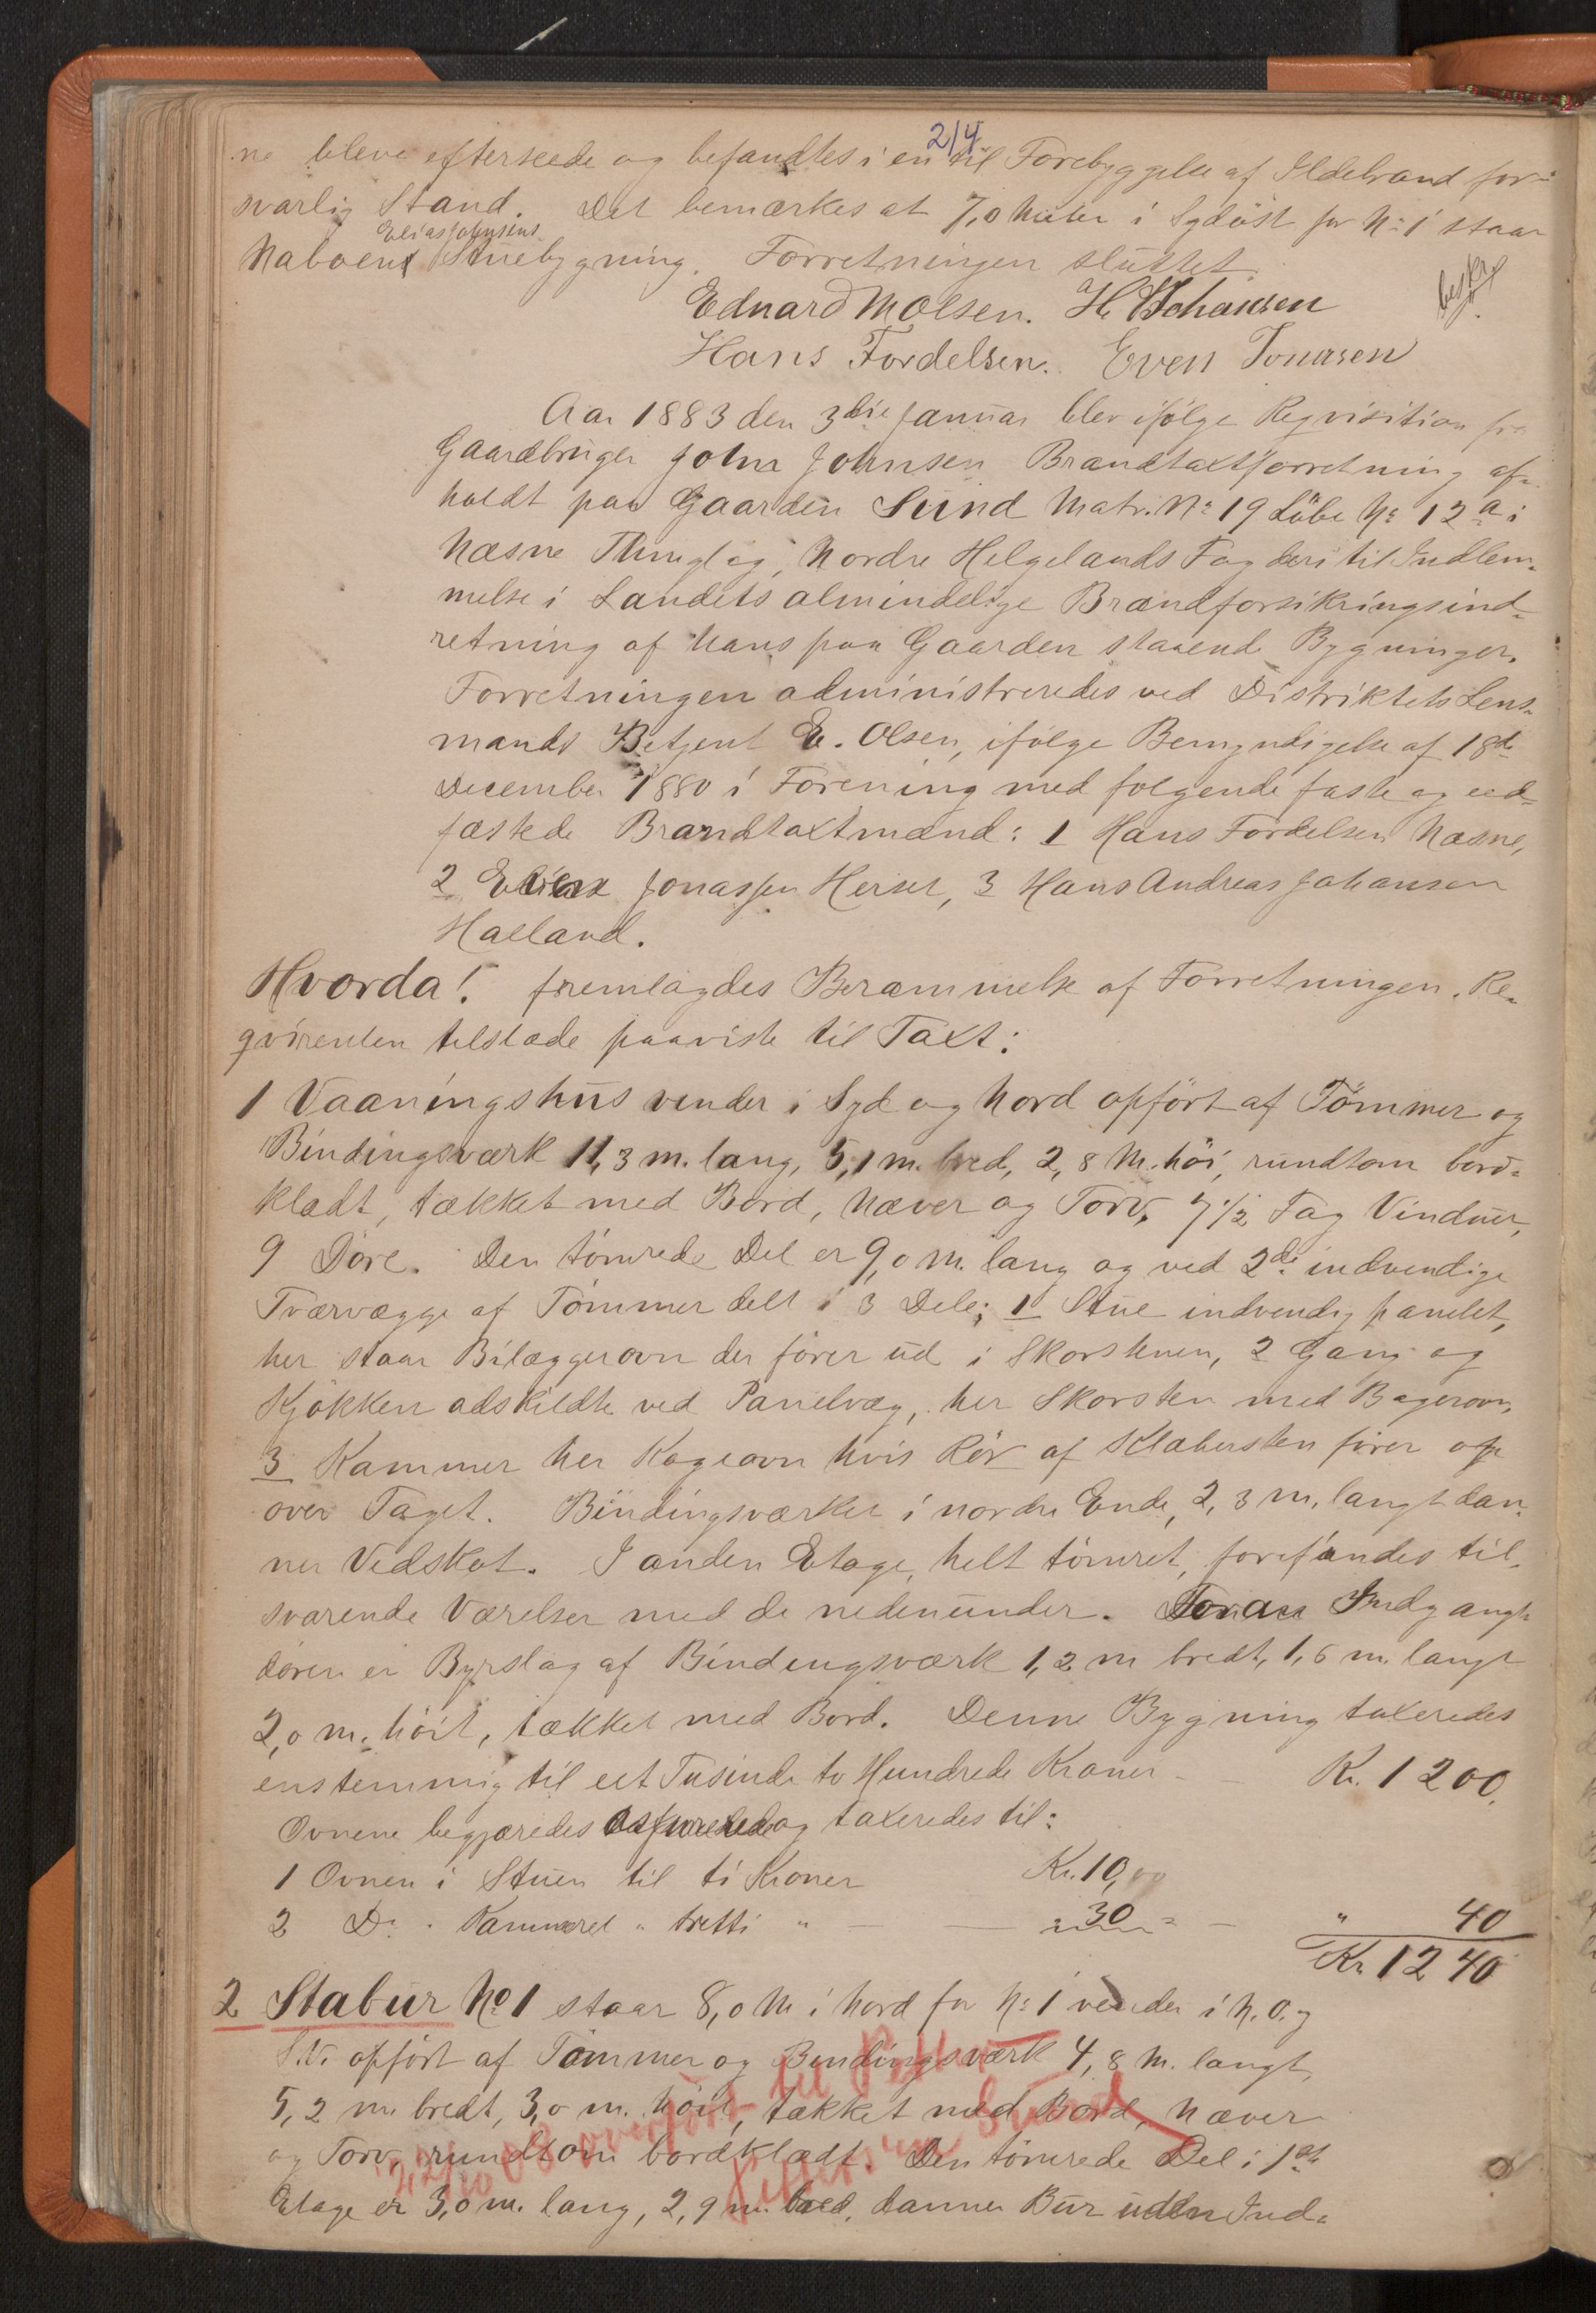 214
ne bleve efterseede og befandtes i en til Forebyggelse af Ildebrand for-
svarlig Stand. Det bemærkes at 7,0 Meter i Sydöst for No 1 staar
Elias Johnsens
Naboens Stuebygning. Forretningen sluttet.
Edvard M Olsen. H. Johansen
beskr
Hans Fordelsen. Even Jonasen
Aar 1883 den 3die Januar blev ifölge Reqvisition fra
Gaardbruger John Johnsen Brandtaxtforretning af-
holdt paa Gaarden Sund Matr. No 19 Löbe No 12a i
Næsne Thinglag, Nordre Helgelands Fogderi til Indlem-
melse i Landets almindelige Brandforsikringsind-
retning af hans paa Gaarden staaende Bygninger.
Forretningen administreredes ved Distriktets Lens-
mands Betjent E. Olsen, ifölge Bemyndigelse af 18de
December 1880 i Forening med fölgende faste og eed-
fæstede Brandtaxtmænd: 1 Hans Fordelsen Næsne,
2 Jonassen Herset, 3 Hans Andreas Johansen
Haeland.
Hvorda! fremlagdes Berammelse af Forretningen. Re-
qvirenten tilstæde paaviste til Taxt:
1 Vaaningshus vender i Syd og Nord opfört af Tömmer og
Bindingsværk 11,3 m. lang, 5,1 m. bred, 2,8 M. höi, rundtom bord-
klædt, tækket med Bord, Næver og Torv. 7 1/2 Fag Vinduer,
9 Döre. Den tömrede Del er 9,0 M. lang og ved 2de indvendige
Tværvægge af Tömmer delt i 3 Dele; 1 Stue indvendig panelet,
her staar Bilæggerovn der förer ud i Skorstenen, 2 Gang og
Kjökken adskildte ved Panelvæg, her Skorsten med Bagerovn,
3 Kammer her Kogeovn hvis Rör af Klæbersten förer op
over Taget. Bindingsværket i nordre Ende, 2,3 m. langt dan-
ner Vedskot. I anden Etage, helt tömret, forefandes til-
svarende Værelser med de nedenunder. Foran Indgangs
dören er Byrslag af Bindingsværk 1,2 m bredt, 1,6 m. langt
2,0 m. höit, tækket med Bord. Denne Bygning taxeredes
enstemmig til eet Tusinde to Hundrede Kroner - - Kr. 1200.
Ovnene begjæredes og taxeredes til:
1 Ovnen i Stuen til ti Kroner Kr. 10,00
2 Do. " Kammeret " tretti " — — " 30 " — " 40
Kr. 1240
2 Stabur No 1 staar 8,0 M i Nord for No 1 vender i N.O. og
S.V. opfört af Tömmer og Bindingsværk 4,8 M. langt,
5,2 m. bredt, 3,0 m. höit, tækket med Bord, Næver
og Torv, rundtom bordklædt. Den tömrede Del i 1ste
Etage er 3,0 m. lang, 2,9 m. bred, danner Bur uden Ind-
22/10 08 overfört til
Sund